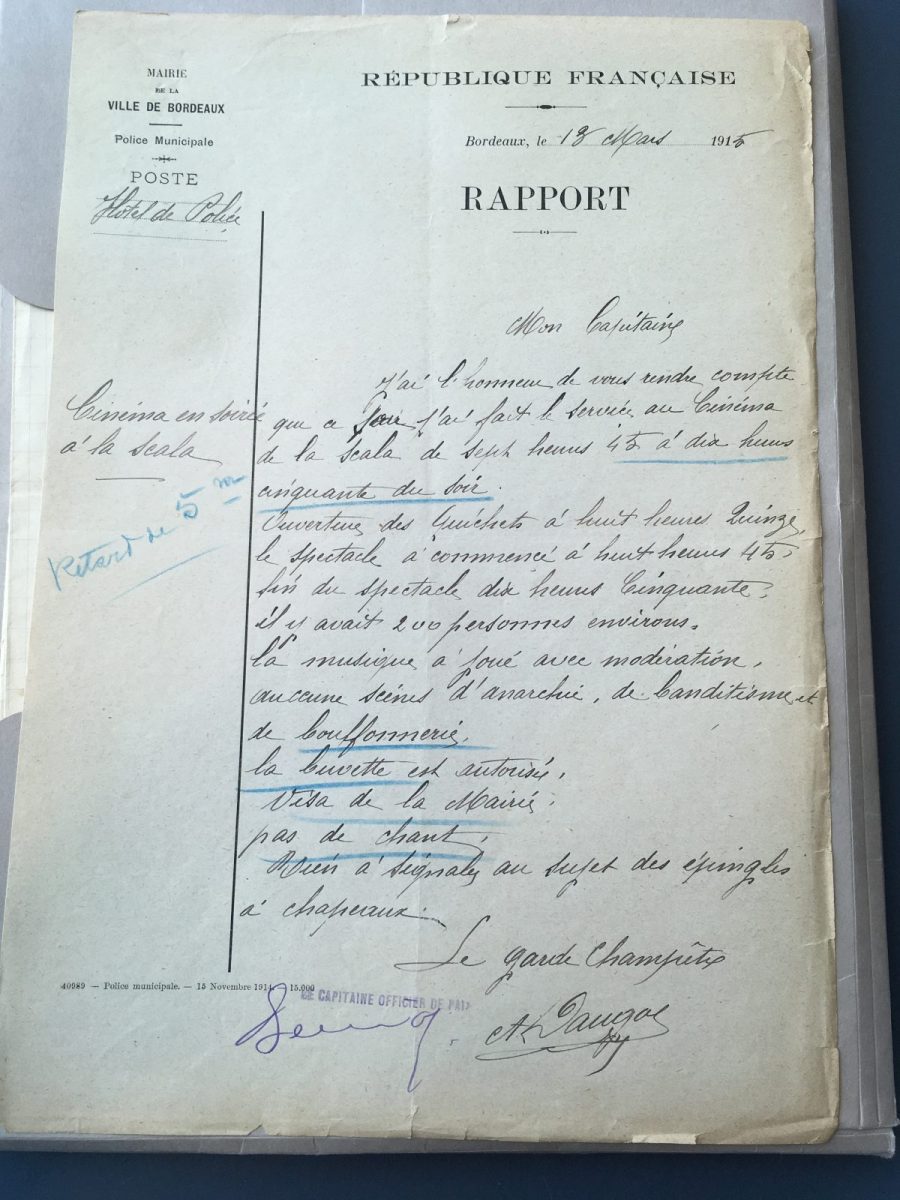 MAIRIE
DE LA
VILLE DE BORDEAUX
Police Municipale
POSTE
Hotel de Police
RÉPUBLIQUE FRANÇAISE
Bordeaux, le Mars 1915
RAPPORT
Mon Capitaine
Cinéma en soirée
à la Scala
Retard de 5 m
J'ai l'honneur de vous rendre compte
que ce j'ai fait le service au Cinéma
de la Scala de sept heures 45 à dix heures
cinquante du soir.
Ouverture des Guichets à huit heures Quinze,
le spectacle à commencé à huit heures 45,
fin du spectacle dix heures Cinquante,
il y avait 200 personnes environs.
la musique à joué avec modération,
auccune scènes d'anarchie, de banditisme et
de bouffonnerie,
la buvette est autorisée,
Visa de la Mairie,
pas de chant,
Rien à signaler au sujet des épingles
à chapeaux.
Le Garde Champêtre
40989 — Police municipale. — 15 Novembre 1914. — 15.000
LE CAPITAINE OFFICIER DE PAIX